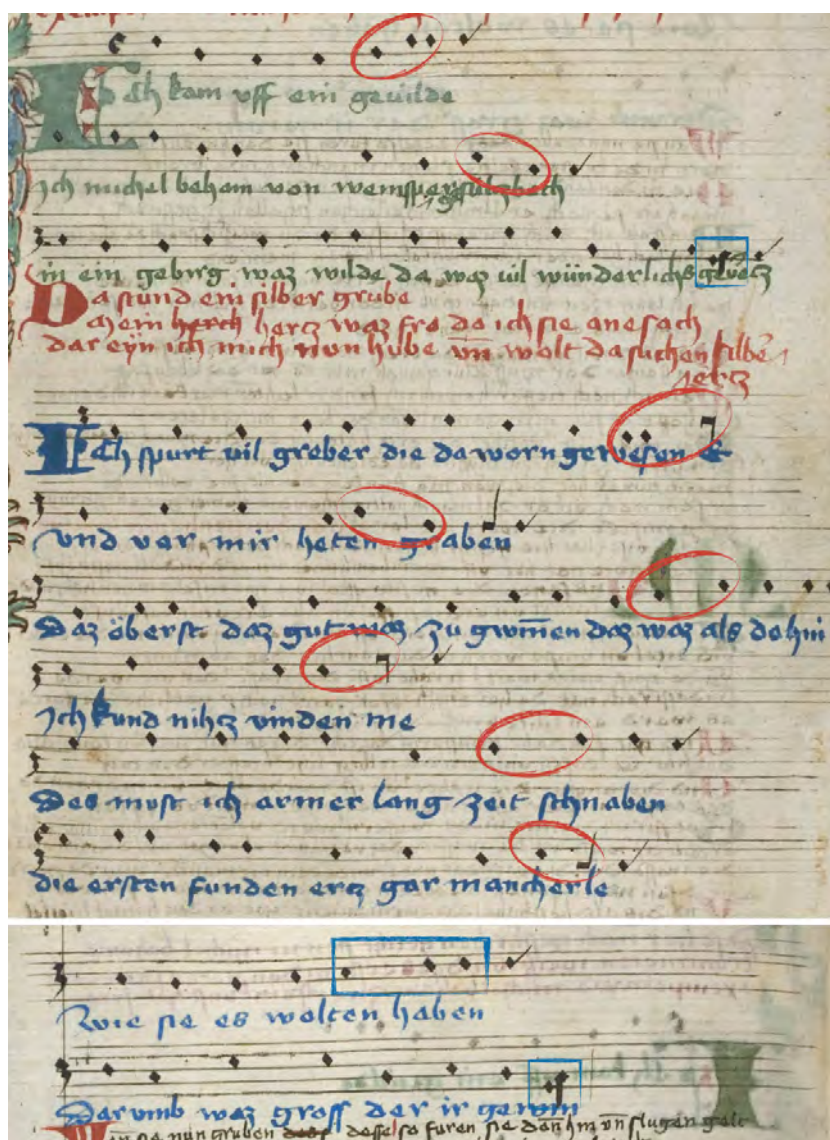 Ich kam vff ein gevilde
Ich michel beham von weinsperg sulczbach
in ein gebirg waz wilde da waz vil wünderlichs
Da stund ein silber grube
Da ein herch hercz waz fro da ich sie ane sach
dar eÿn ich mich nun hube vn̄ wolt da suchen silber
ercz
Ich spurt vil greber die da worn gewesen
vnd vor mir heten graben
Daz öberst daz gut waz zu gwin̄en daz waz als do hin
Ich kund nihcz vinden me
Des must ich armer lang zeit schnaben
die ersten funden ercz gar mancherle
Wie sie es wolten haben
Dar vmb waz gross der ir gewin
sie nun gruben desselso furen sie den hin vn̄ slugen